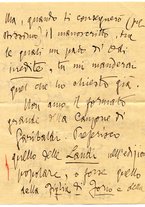 Ma, quando ti consegnerò
il manoscritto, tra
le quali un paio di Odi
inedite, tu mi manderai
quel che ho chiesto già.
Non amo il formato
grande della Canzone di
Garibaldi. Preferisco
quello delle Laudi nell'edizione
popolare, o forse quello
della Figlia di Jorio e della